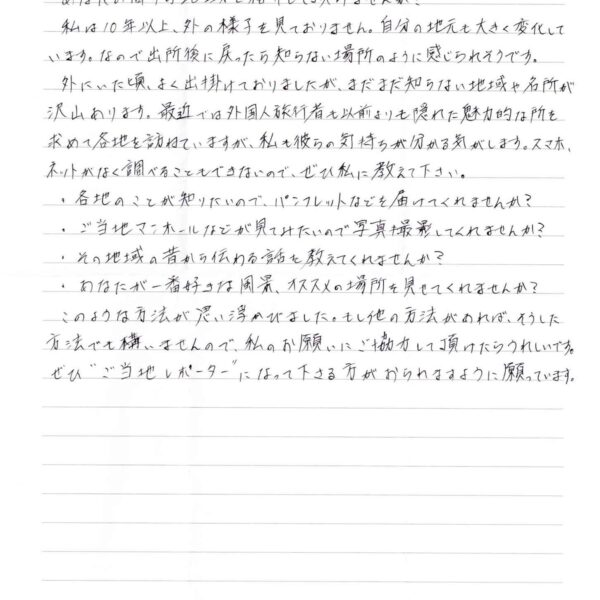 私は10年以上、外の様子を見ておりません。自分の地元も大きく変化して
います。なので出所後に戻ったら知らない場所のように感じられそうです。
外にいた頃、よく出掛けておりましたが、まだまだ知らない地域や名所が
沢山あります。最近では外国人旅行者も以前よりも隠れた魅力的な所を
求めて各地を訪ねていますが、私も彼らの気持ちが分かる気がします。スマホ、
ネットがなく調べることもできないので、ぜひ私に教えて下さい。
・各地のことが知りたいので、パンフレットなどを届けてくれませんか?
・ご当地マンホールなどが見てみたいので写真を撮影してくれませんか?
・その地域の昔から伝わる話を教えてくれませんか?
・あなたが一番好きな風景、オススメの場所を見せてくれませんか?
このような方法が思い浮かびました。もし他の方法があれば、そうした
方法でも構いませんので、私のお願いにご協力して頂けたらうれしいです。
ぜひ"ご当地レポーター"になって下さる方がおられますように願っています。